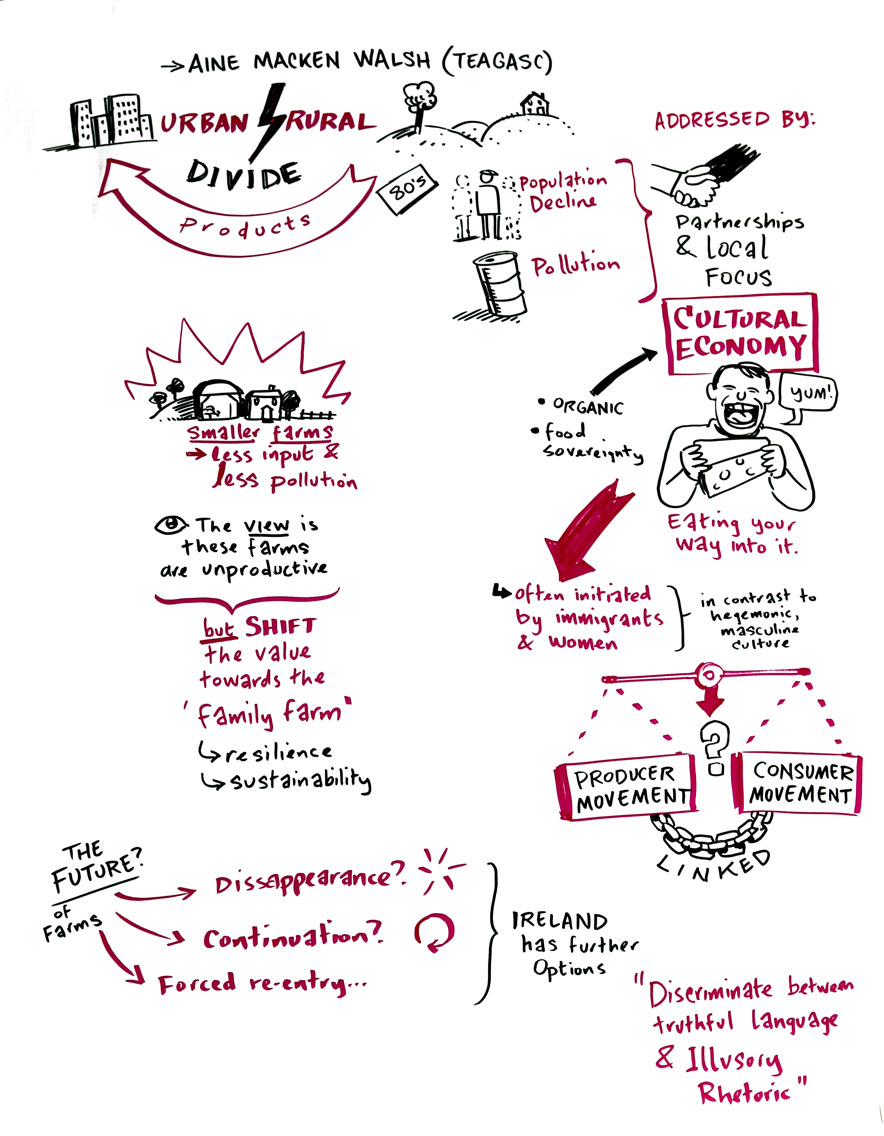 → AINE MACKEN WALSH (TEAGASC)
URBAN RURAL
DIVIDE
Products
80's
Population
Decline
Pollution
ADDRESSED BY:
Partnerships
& Local
Focus
CULTURAL
ECONOMY
YUM!
• ORGANIC
• food
sovereignty
Eating your
way into it.
smaller farms
→ less input &
less pollution
The view is
these farms
are unproductive
but SHIFT
the value
towards the
'family farm"
↳ resilience
↳ sustainability
↳ often initiated
by immigrants
& women
in contrast to
hegemonic,
masculine
culture
?
PRODUCER
MOVEMENT
CONSUMER
MOVEMENT
LINKED
THE
FUTURE?
of
Farms
Dissappearance?
Continuation?
Forced re-entry...
IRELAND
has further
Options
"Discriminate between
truthful language
& Illusory
Rhetoric"